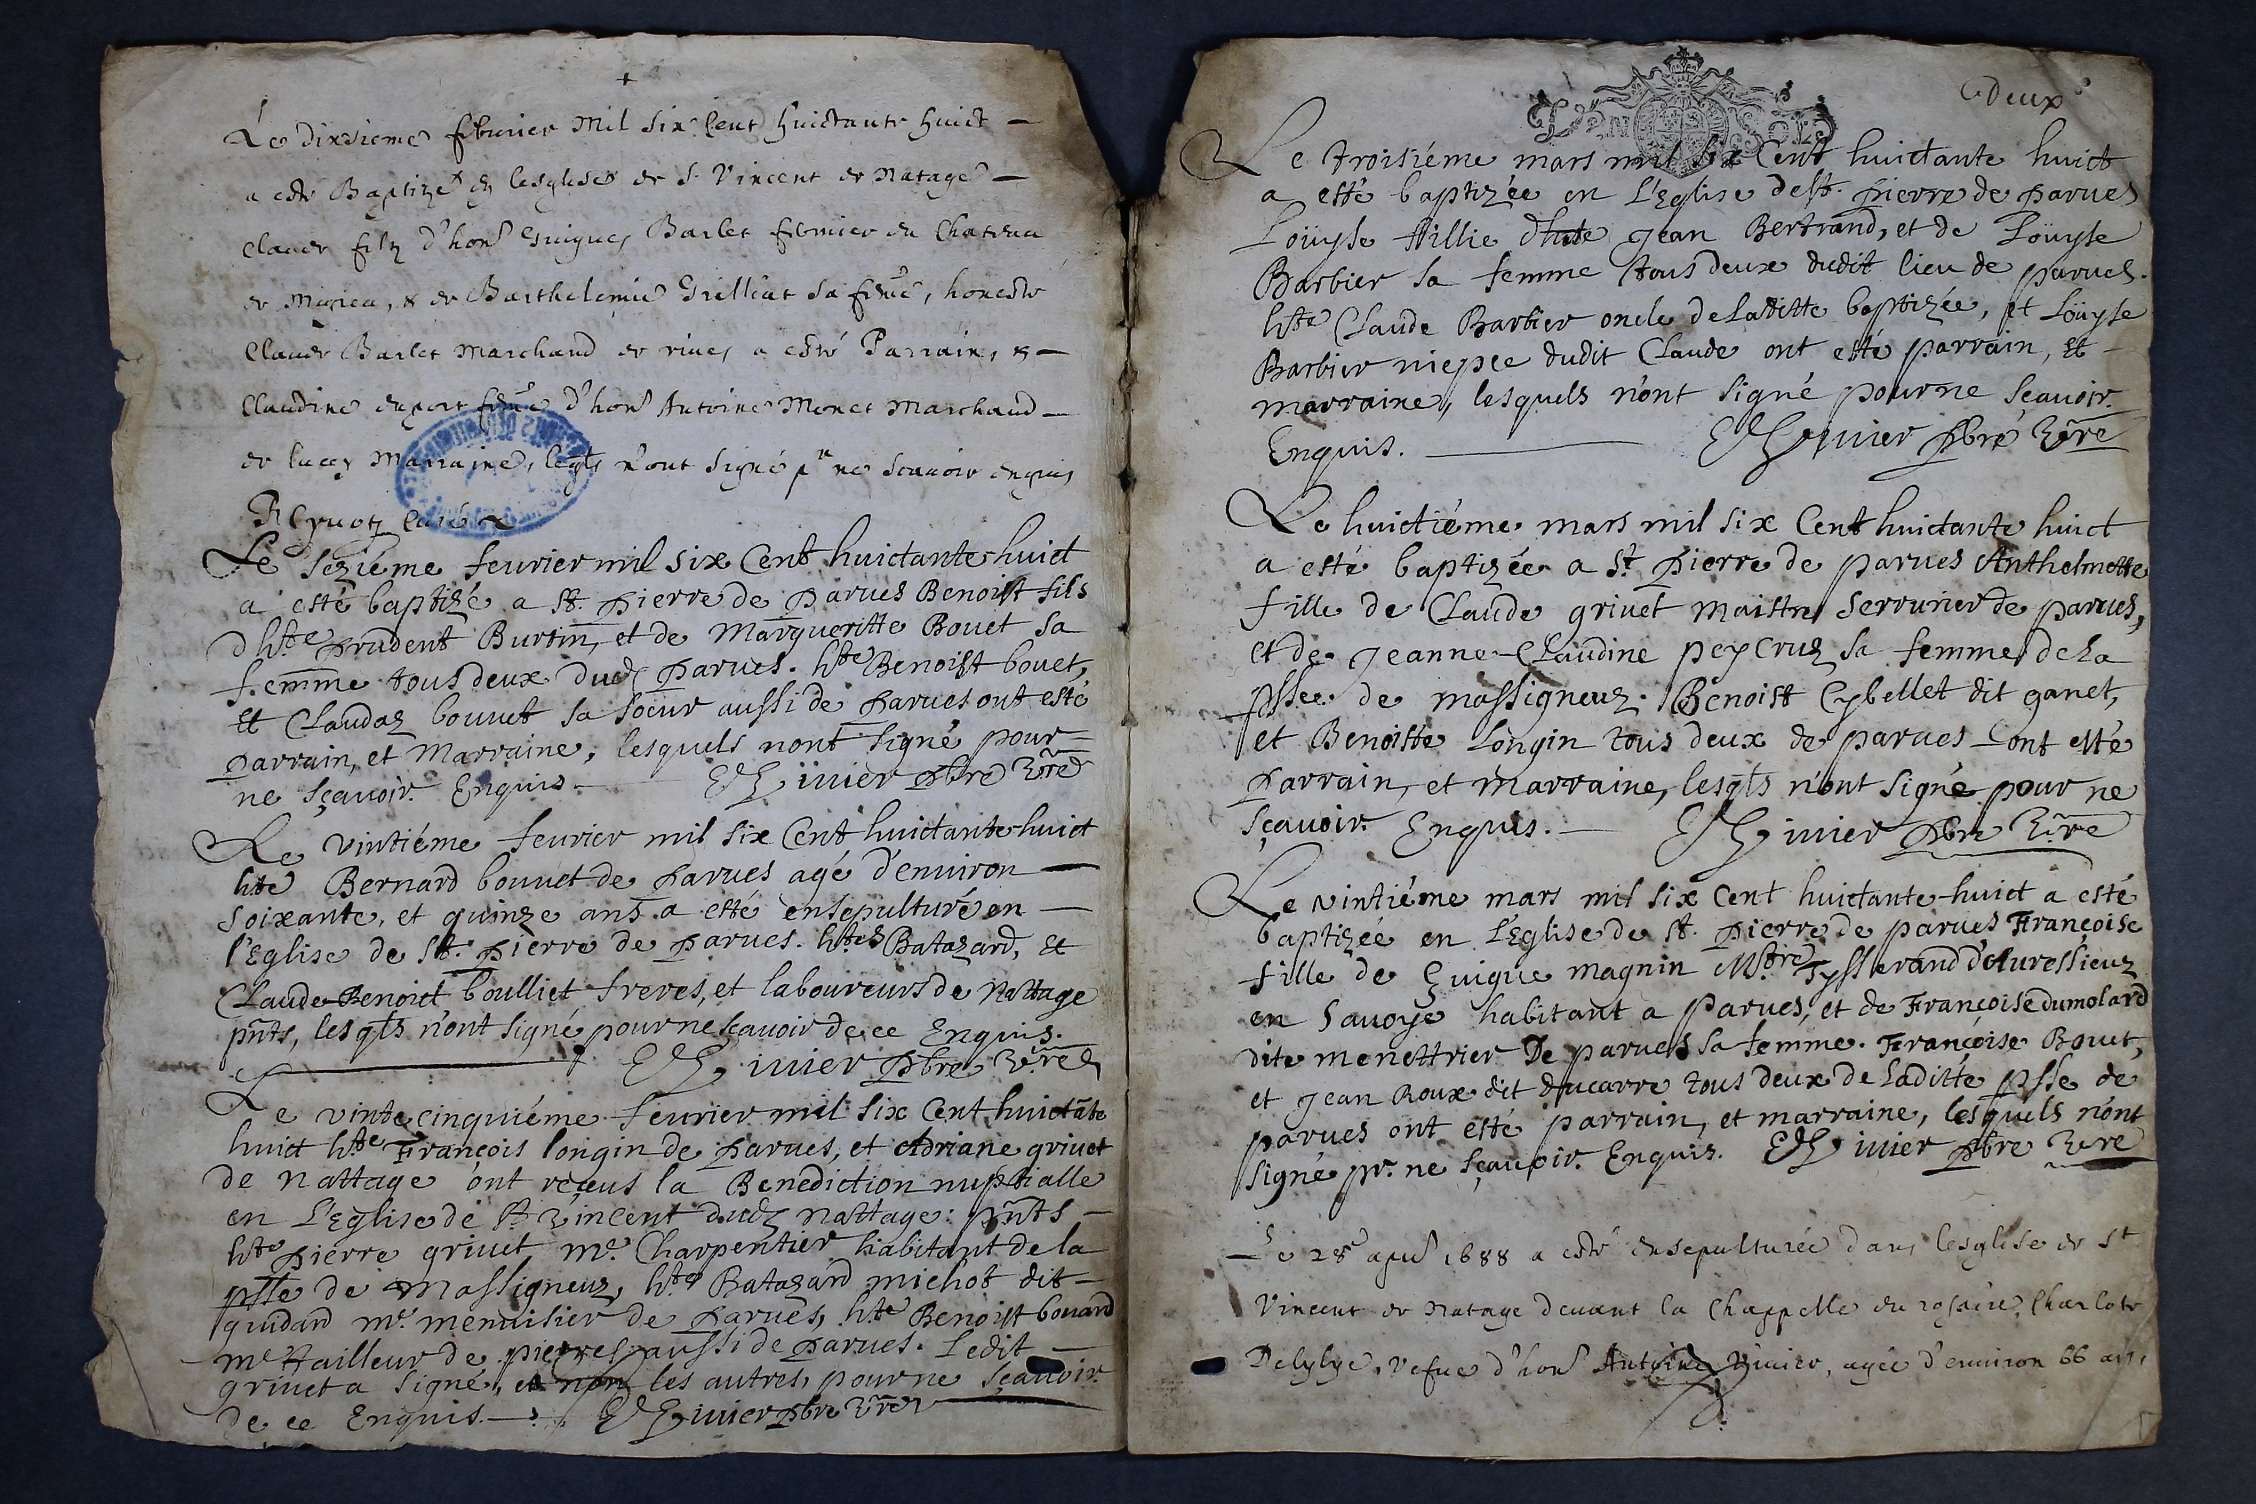 Le dixsieme febvrier mil six cent huictante huict –
a este Baptizé en lesglise de St Vincent de Natage –
Claude filz d'hon. Guigues Barlet fermier du Chateau
de Musieu, & de Barthelemie Grilliat sa feme, honeste
Claude Barlet Marchand de rives a esté Parrain, & –
Claudine duport feme d'hon. Antoine Monet Marchand –
de lucey Marraine, lesqls n'ont signé pr ne scauoir enquis
curé
Le sezième feurier mil six Cent huictante huict
a esté baptizé a St. Pierre de Parues Benoist fils
d'hte Prudent Burtin, et de Margueritte Bouet sa
femme tous deux dud Parues. hte Benoist bouet,
Et Claudaz bouuet sa soeur aussi de Parues ont esté
Parrain, et Marraine, lesquels nont signé pour
ne sçauoir. Enquis. iuier Pbre Vre
Le vintiéme feurier mil six Cent huictante huict
hte Bernard bouuet de Parues agé d'enuiron –
soixante, et quinze ans a esté ensepulturé en –
l'Eglise de St. Pierre de Parues. htes Batazard, Et
Claude Benoict boulliet freres, et laboureurs de Nattage
pnts, lesqls n'ont signé pour ne scauoir de ce Enquis.
iuier Pbre Vre
Le vinte cinquiéme feurier mil six Cent huictāte
huict hte François longin de Parues, et Adriane griuet
de Nattage ont reçeus la Benediction nuptialle
en L'Eglise de St Vincent dud Nattage: pnts –
hte Pierre griuet me. Charpentier habitant de la
psse de Massigneuz, hte Batazard michot dit –
guidard me. menuisier de Parues, hte Benoist bouard
me tailleur de pierres aussi de Parues. Ledit –
griuet a signé, et non les autres, pour ne sçauoir
de ce Enquis. – iuier Pbre Vre
deux
DEN SOLS
Le troisiéme mars mil six Cent huictante huict
a esté baptizée en L'Eglise de St. Pierre de Parues
Loüyse fillie d'hte Jean Bertrand, et de Loüyse
Barbier sa femme tous deux dudit lieu de parues.
hte Claude Barbier oncle de Laditte baptizée, et Loüyse
Barbier niepce dudit Claude ont esté parrain, Et –
marraine, lesquels n'ont signé pour ne sçauoir.
Enquis. iuier Pbre Vre
Le huictiéme mars mil six Cent huictante huict
a esté baptizée a St. Pierre de parues Anthelmette
fille de Claude griuet maistre serrurier de parues,
et de Jeanne-Claudine peycruz sa femme de la
psse de massigneuz. Benoist Cybellet dit ganet,
et Benoiste Longin tous deux de parues ont esté
Parrain, et marraine, lesqls n'ont signé pour ne
sçauoir. Enquis. – iuier Pbre Vre
Le vintiéme mars mil six Cent huictante-huict a esté
baptizée en L'Eglise de St. Pierre de parues Françoise
fille de Guigue magnin Mtre Tysserand d'oluressieuz
en Sauoye habitant a Parues, et de Françoise dumolard
dite menettrier De parues sa femme. Françoise Bouet,
et Jean Roux dit ducarre tous deux de Laditte psse de
parues ont esté parrain, et marraine, lesquels n'ont
signé pr. ne sçauoir. Enquis. iuier Pbre Vre
Le 28e april 1688 a esté ensepulturée dans lesglise de St
Vincent de Natage deuant la Chappelle du rosaire, Charlote
Delylye, vefue d'hon. Antoine Viuier, agée d'enuiron 66 ans,